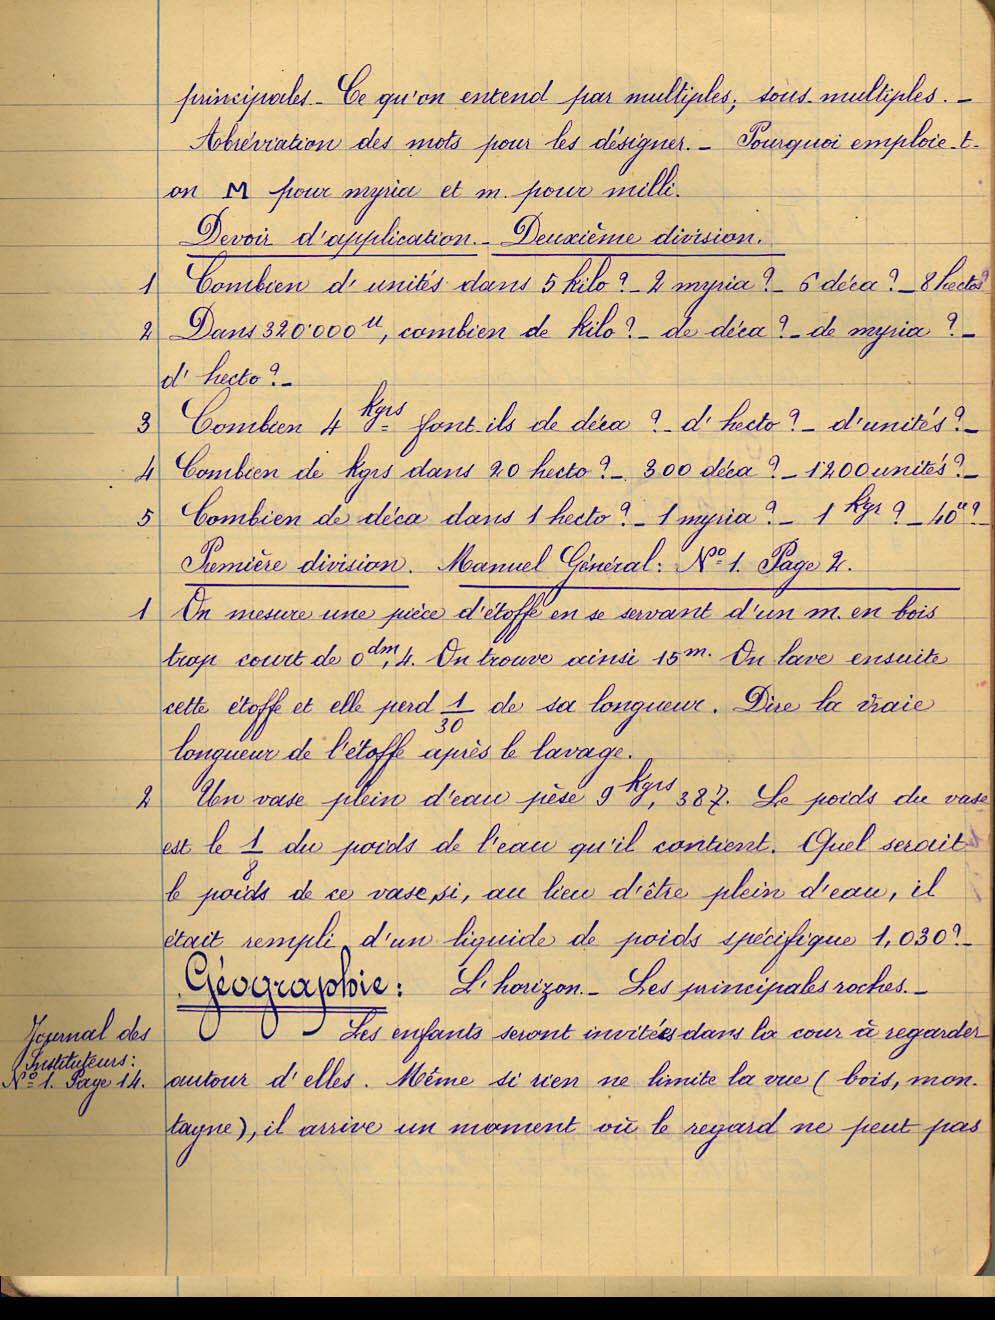 principales_ Ce qu'on entend par multiples; sous-multiples._
Abréviation des mots pour les désigner._ Pourquoi emploie-t-
on M pour myria et m. pour milli.
Devoir d'application._ Deuxième division.
1 Combien d'unités dans 5 kilo?_ 2 myria?_ 6 déca?_ 8 hectos?
2 Dans 320.000 u, combien de kilo?_ de déca?_ de myria?_
d'hecto?_
3 Combien 4 kgrs font-ils de déca?_ d'hecto?_ d'unités?_
4 Combien de kgrs dans 20 hecto?_ 300 déca?_ 1200 unités?_
5 Combien de déca dans 1 hecto?_ 1 myria?_ 1 kgr?_ 40 u?_
Première division. Manuel Général: No 1. Page 2.
1 On mesure une pièce d'étoffe en se servant d'un m. en bois
trop court de 0 dm, 4. On trouve ainsi 15 m. On lave ensuite
cette étoffe et elle perd 1/30 de sa longueur. Dire la vraie
longueur de l'étoffe après le lavage.
2 Un vase plein d'eau pèse 9 kgrs, 387. Le poids du vase
est le 1/8 du poids de l'eau qu'il contient. Quel serait
le poids de ce vase, si, au lieu d'être plein d'eau, il
était rempli d'un liquide de poids spécifique 1,030?_
Géographie: L'horizon._ Les principales roches._
Journal des
Instituteurs:
No 1. Page 14.
Les enfants seront invitées dans la cour à regarder
autour d'elles. Même si rien ne limite la vue (bois, mon-
tagne), il arrive un moment où le regard ne peut pas